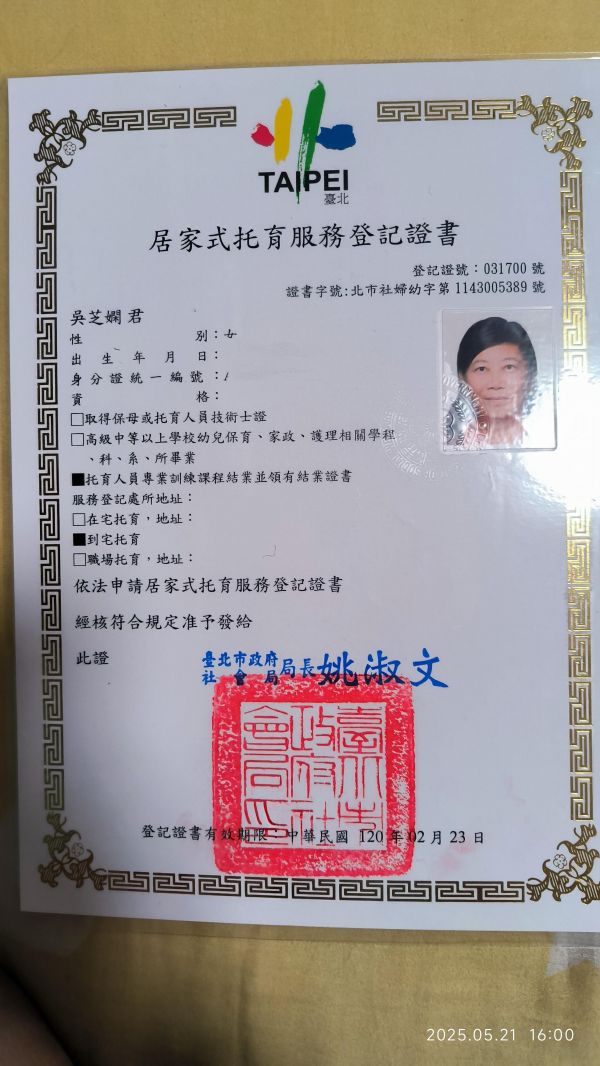 TAIPEI
臺北
居家式托育服務登記證書
登記證號：031700 號
證書字號:北市社婦幼字第 1143005389 號
吳芝嫻 君
性別：女
出生年月日：
身分證統一編號：
資格：
□取得保母或托育人員技術士證
□高級中等以上學校幼兒保育、家政、護理相關學程
、科、系、所畢業
■托育人員專業訓練課程結業並領有結業證書
服務登記處所地址：
□在宅托育，地址：
■到宅托育
□職場托育，地址：
依法申請居家式托育服務登記證書
經核符合規定准予發給
此證
臺北市政府
社會局
局長姚淑文
臺北市
政府社
會局印
登記證書有效期限：中華民國 120 年 02 月 23 日
2025.05.21 16:00